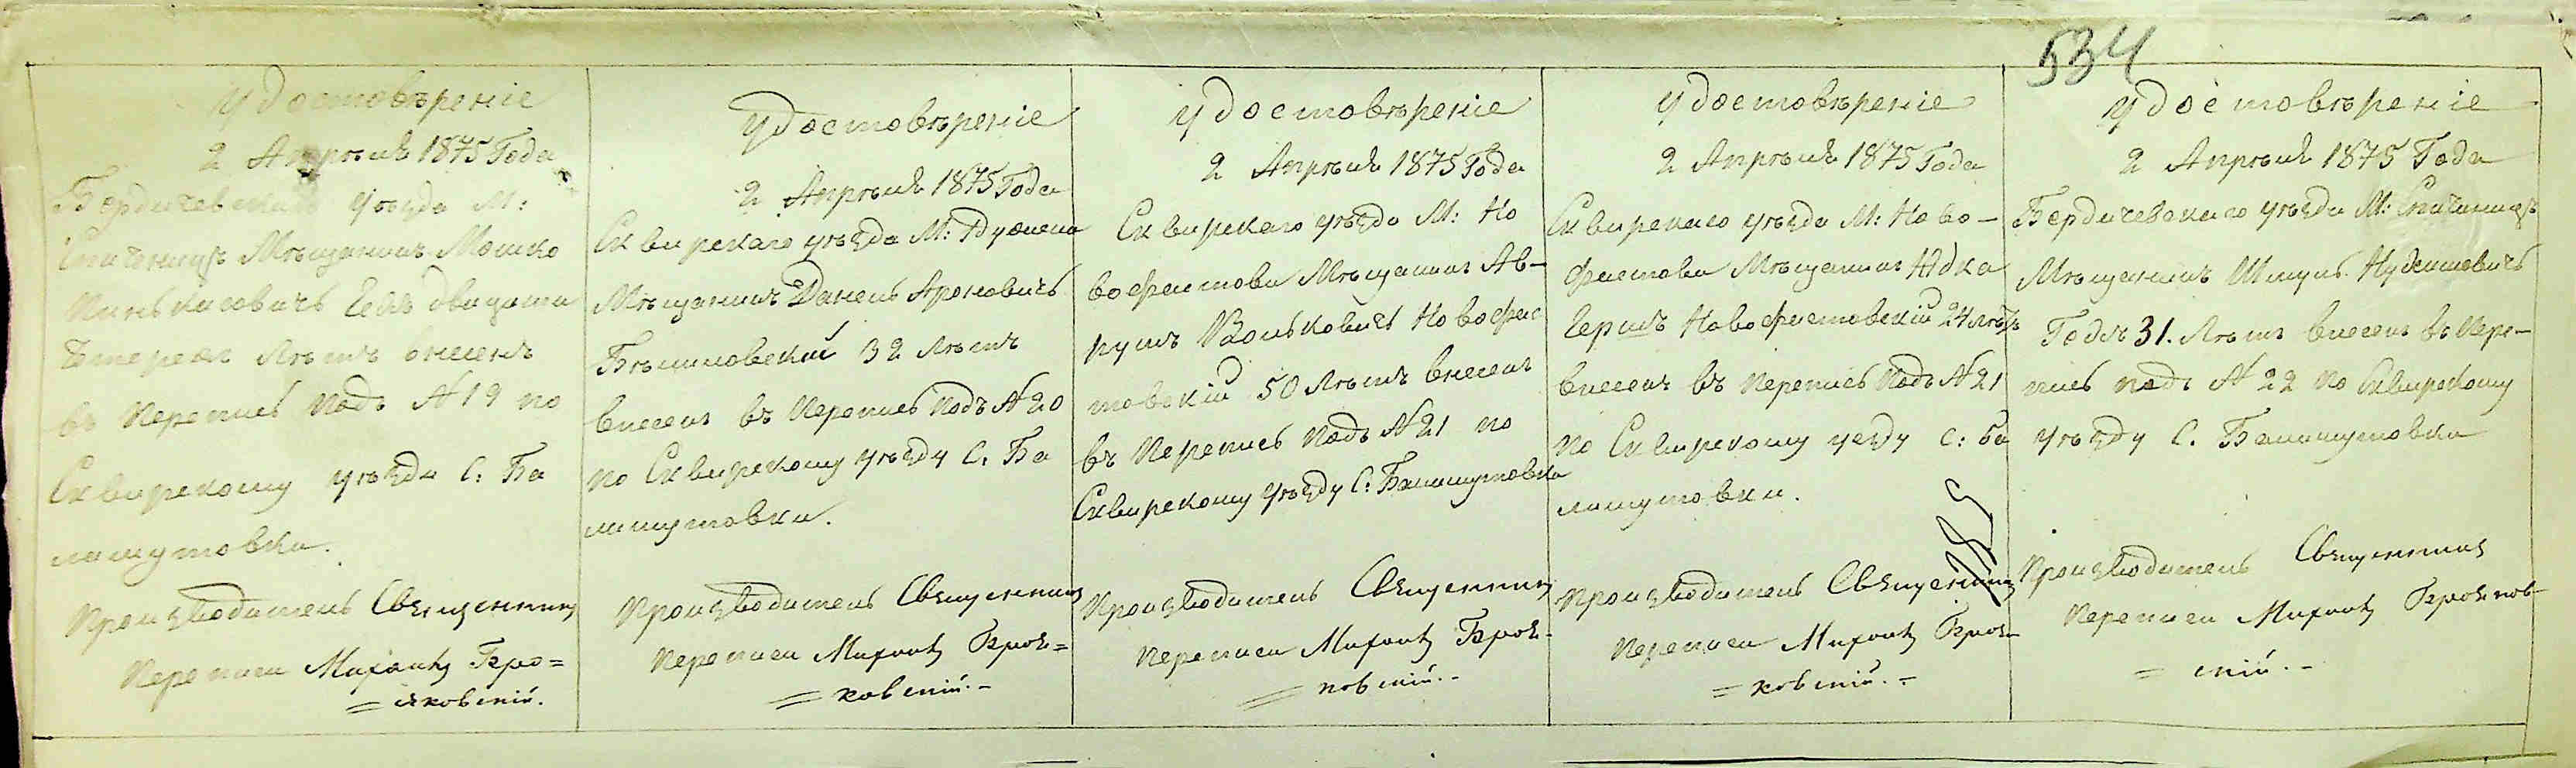 534
Удостовѣреніе
2 Апрѣля 1875 Года
Бердичевскаго Уѣзда М:
Спичинецъ Мѣщанинъ Мошко
двадцати
Лѣтъ внесенъ
въ Перепись Подъ №19 по
Сквирскому уѣзду С: Ба
лашутовки.
Производитель Священникъ
Переписи Михаилъ
Удостовѣреніе
2 Апрѣля 1875 Года
Сквирскаго уѣзда М: Ружина
Мѣщанинъ Данель Ароновичъ
Бѣлиловскій 32 Лѣтъ
внесенъ въ Перепись Подъ №20
по Сквирскому уѣзду С: Ба
лашутовки.
Производитель Священникъ
Переписи Михаилъ
=ковскій.-
Удостовѣреніе
2 Апрѣля 1875 Года
Сквирскаго уѣзда М: Но
вофастова Мѣщанинъ Ав-
румъ Вольковичъ Новофас
товскій 50 Лѣтъ внесенъ
въ Перепись Подъ №21 по
Сквирскому уѣзду С: Балашутовка
Производитель Священникъ
Переписи Михаилъ
=ковскій.-
Удостовѣреніе
2 Апрѣля 1875 Года
Сквирскаго уѣзда М: Ново-
фастова Мѣщанинъ Юдка
Гершъ Новофастовскій 24 лѣтъ
внесенъ въ Перепись Подъ №21
по Сквирскому уезду С: Ба
лашутовки.
Производитель Священникъ
Переписи Михаилъ
=ковскій.-
Удостовѣреніе
2 Апрѣля 1875 Года
Бердичевскаго уѣзда М: Спичинецъ
Мѣщанинъ Шмуль
31. Лѣтъ внесенъ въ Пере-
пись подъ №22 по Сквирскому
уѣзду С. Балашутовка
Производитель Священникъ
Переписи Михаилъ
=скій.-